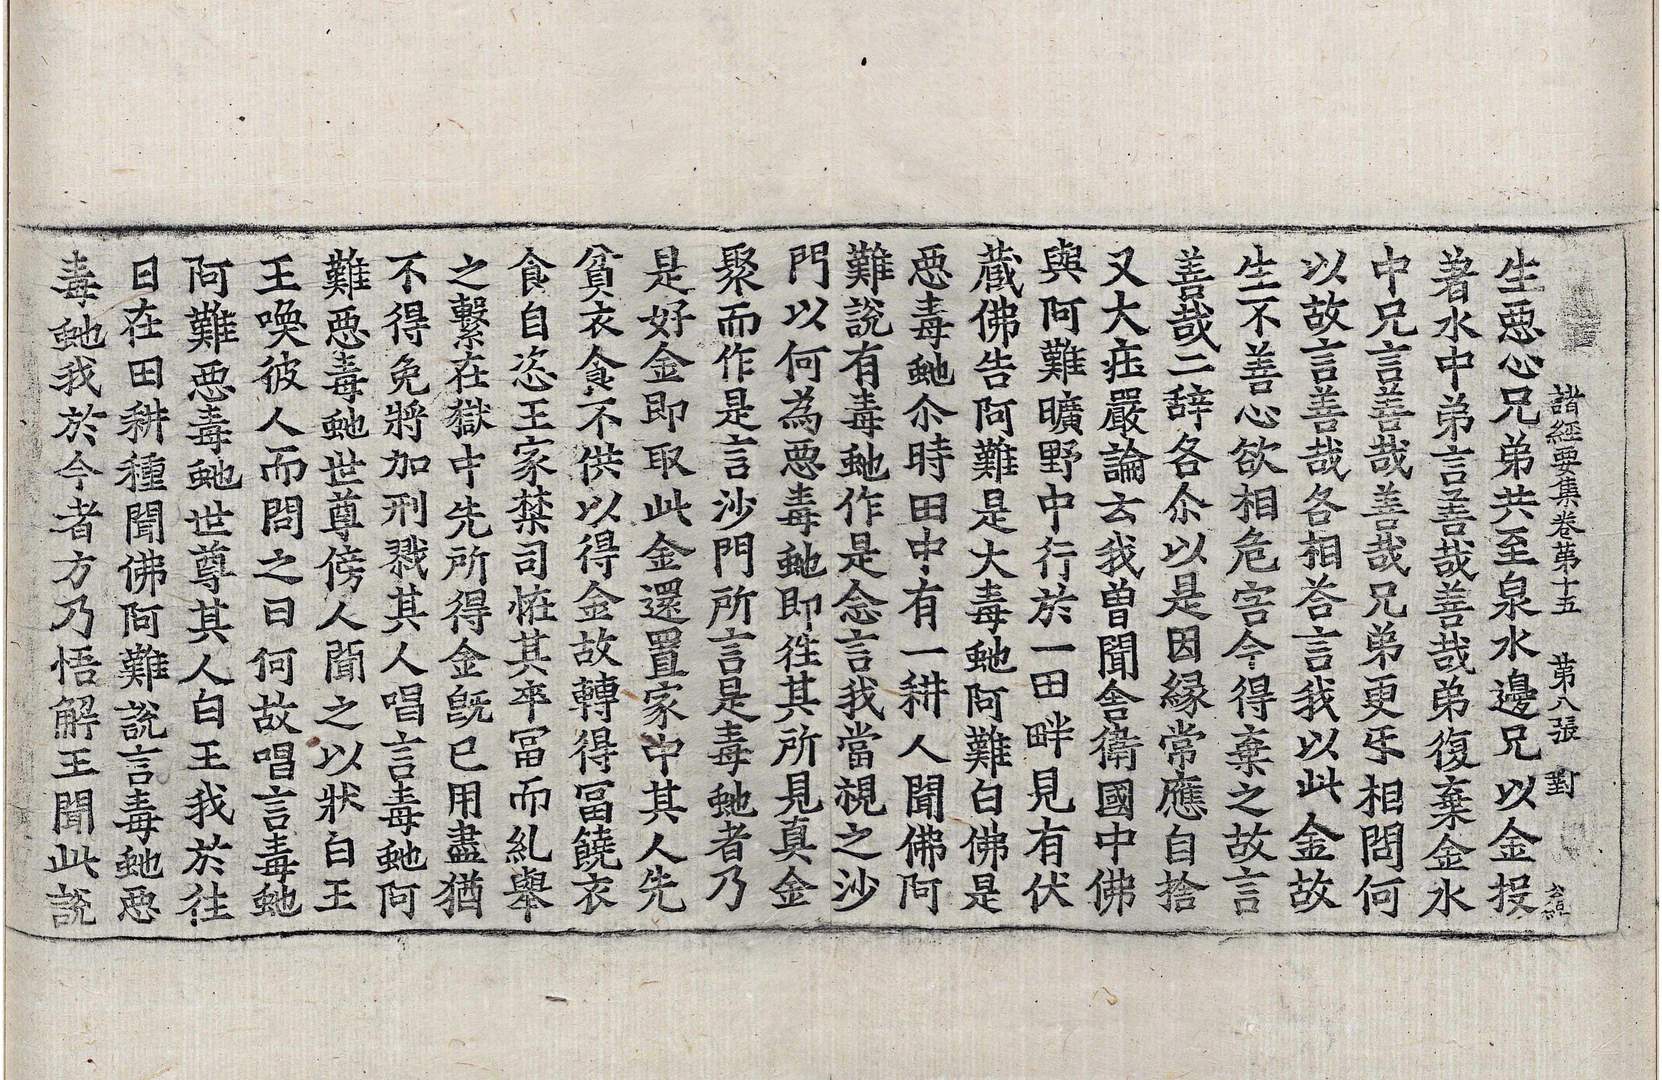 諸經要集卷第十五　第八張　對
生惡心兄弟共至泉水邊兄以金投
著水中弟言善哉善哉弟復棄金水
中兄言善哉善哉兄弟更㸦相問何
以故言善哉各相荅言我以此金故
生不善心欲相危害今得棄之故言
善哉二辞各尒以是因緣常應自捨
又大庄嚴論云我曽聞舎衛國中佛
與阿難曠野中行於一田畔見有伏
藏佛告阿難是大毒虵阿難白佛是
惡毒虵尒時田中有一耕人聞佛阿
難說有毒虵作是念言我當視之沙
門以何為惡毒虵即徃其所見真金
聚而作是言沙門所言是毒虵者乃
是好金即取此金還置家中其人先
貧衣食不供以得金故轉得冨饒衣
食自恣王家禁司恠其卒冨而糺舉
之繫在獄中先所得金旣已用盡猶
不得免將加刑戮其人唱言毒虵阿
難惡毒虵世尊傍人聞之以狀白王
王喚彼人而問之曰何故唱言毒虵
阿難惡毒虵世尊其人白王我於往
日在田耕種聞佛阿難說言毒虵惡
毒虵我於今者方乃悟解王聞此說